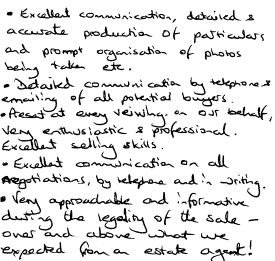 • Excellent communication, detailed &
accurate production of particulars
and prompt organisation of photos
being taken etc.
• Detailed communication by telephone &
emailing of all potential buyers.
• Present at every veiwing. on our behalf,
very enthusiastic & professional.
Excellent selling skills.
• Excellent communication on all
negotiations, by telephone and in writing.
• Very approachable and informative
during the legality of the sale –
over and above what we
expected from an estate agent!